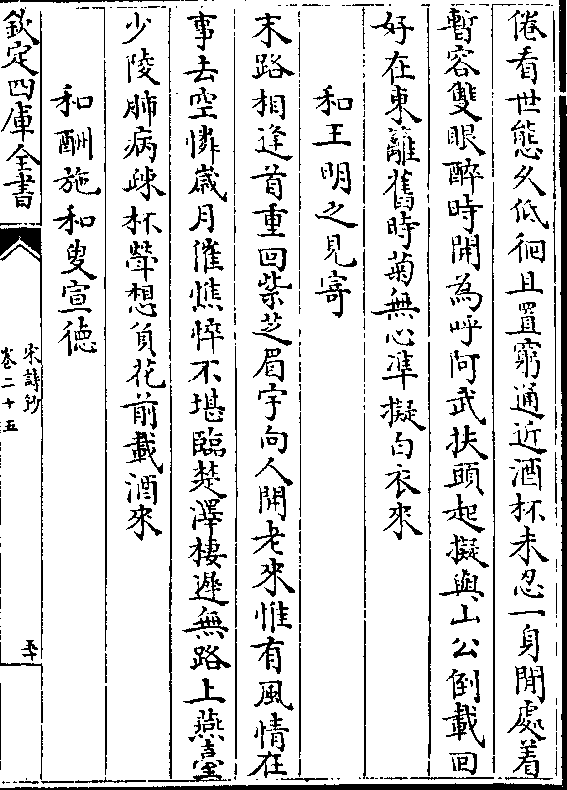 倦看世態久低徊且置窮通近酒杯未忍一身閒處着
暫容雙眼醉時開為呼阿武扶頭起擬與山公倒載回
好在東籬舊時菊無心準擬白衣來
和王明之見寄
末路相逢首重回紫芝眉宇向人開老來惟有風情在
事去空憐歲月催憔悴不堪臨楚澤棲遲無路上燕臺
少陵肺病疎杯斚想負花前載酒來
和酬施和叟宣德
欽定四庫全書
宋詩鈔
卷二十五